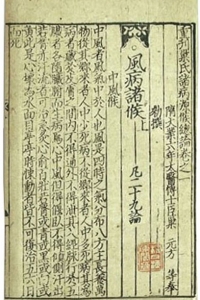 重刊巢氏諸病源候總論卷之一
隋大業六年太醫博士臣巢 元方 等奉
勑撰
風病諸候上 凡二十九論
中風候
中風者風氣中於人也風是四時之氣分布八方主長養萬
物從其鄉來者人中少死病不從其鄉來者人中多死病其為
病者藏於皮膚之間內不得通外不得泄其入經脉行於五藏
者各隨藏府而生病焉心中風但得偃臥不得傾側汗出
若唇赤汗流者可治急灸心俞百壯若唇或青或白或
黃此是心壞為水面目亭亭時悚動者皆不可復治五六日
而死